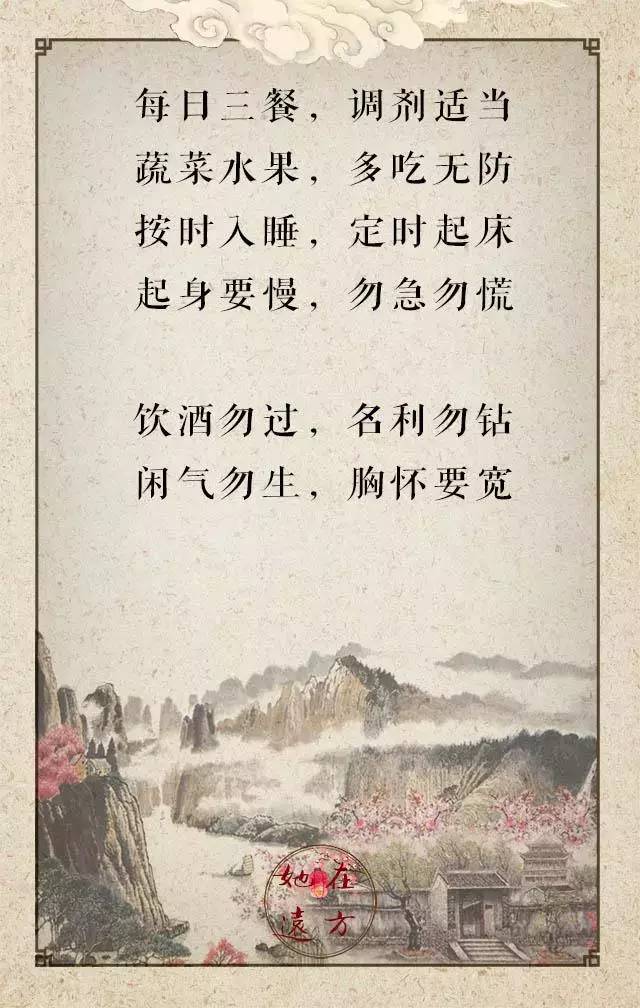 每日三餐，调剂适当
蔬菜水果，多吃无防
按时入睡，定时起床
起身要慢，勿急勿慌
饮酒勿过，名利勿钻
闲气勿生，胸怀要宽
她在
遠方